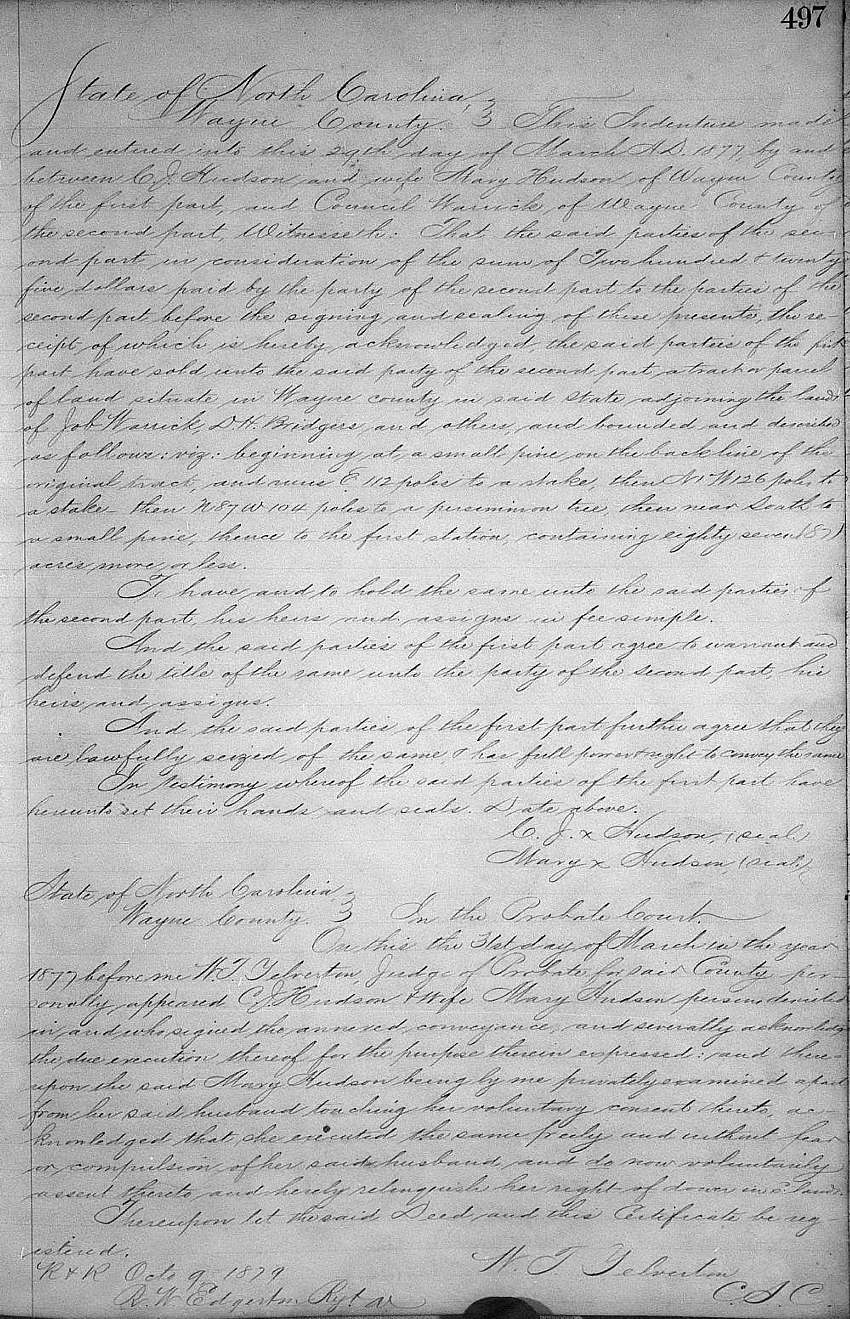 497
State of North Carolina,
Wayne County. } This Indenture made
and entered into this 29th day of March A.D. 1877, by and
between C. J. Hudson and wife Mary Hudson of Wayne County
of the first part, and Council Warrick of Wayne County of
the second part, Witnesseth: That the said parties of the sec-
ond part in consideration of the sum of Two hundred & twenty
five dollars paid by the party of the second part to the parties of the
second part before the signing and sealing of these presents, the re-
ceipt of which is hereby acknowledged, the said parties of the first
part have sold unto the said party of the second part, a tract or parcel
of land situate in Wayne county in said state adjoining the lands
of Job Warrick, D H. Bridgers and others, and bounded and described
as follows: viz: beginning at a small pine on the back line of the
original tract, and runs E 112 poles to a stake, then N 1° W 126 poles to
a stake - then N 87 W 104 poles to a persimmon tree, then near South to
a small pine, thence to the first station, containing eighty seven (87)
acres, more, or less.
To have and to hold the same unto the said parties of
the second part, his heirs and assigns in fee simple.
And the said parties of the first part agree to warrant and
defend the title of the same unto the party of the second part, his
heirs, and assigns.
And the said parties of the first part further agree that they
are lawfully seized of the same & has full power & right to convey the same
In testimony whereof the said parties of the first part have
hereunto set their hands and seals. Date above.
C. J. x Hudson, (seal)
Mary x Hudson, (seal)
State of North Carolina,
Wayne County. } In the Probate Court.
On this the 31st day of March in the year
1877 before me W. T. Yelverton, Judge of Probate for said County per-
sonally appeared C. J. Hudson & wife Mary Hudson persons described
in, and who signed the annexed conveyance, and severally acknowledged
the due execution thereof for the purpose therein expressed: and there-
upon the said Mary Hudson being by me privately examined apart
from her said husband touching her voluntary consent thereto, ac-
knowledged that she executed the same freely and without fear
or compulsion of her said husband, and do now voluntarily
assent thereto and hereby relinquish her right of dower in s. lands.
Thereupon let the said Deed, and this Certificate be reg-
istered.
W. T. Yelverton
R & R Octo 9. 1879
C. S. C.
R. W. Edgerton Rgt